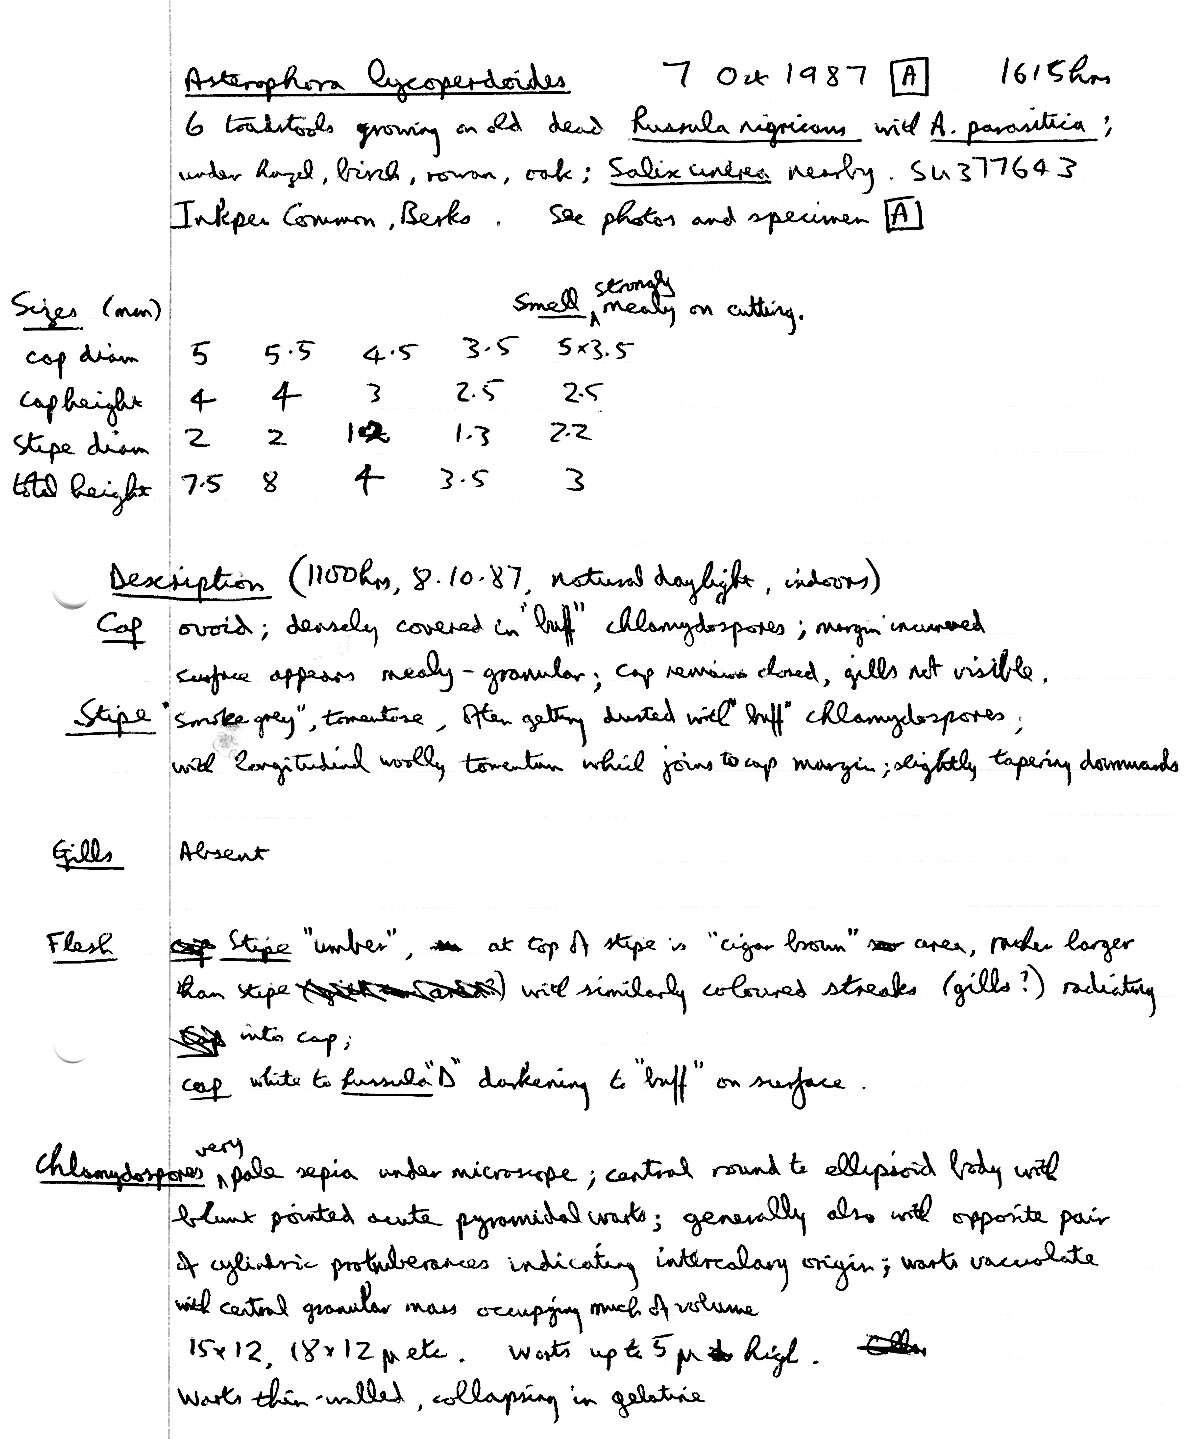 Asterophora lycoperdoides 7 Oct 1987 [A] 1615hrs
6 toadstools growing on old dead Russula nigricans with A. parasitica;
under hazel, birch, rowan, oak; Salix cinerea nearby. SU377643
Inkpen Common, Berks. See photos and specimen [A]
Sizes (mm) Smell strongly mealy on cutting.
cap diam 5 5.5 4.5 3.5 5x3.5
cap height 4 4 3 2.5 2.5
stipe diam 2 2 1.3 2.2
total height 7.5 8 4 3.5 3
Description (1100hrs, 8.10.87, natural daylight, indoors)
Cap ovoid; densely covered in "buff" chlamydospores; margin incurved
surface appears mealy-granular; cap remains closed, gills not visible.
Stipe "smoke grey", tomentose, often getting dusted with "buff" chlamydospores;
with longitudinal woolly tomentum which joins to cap margin; slightly tapering downwards
Gills Absent
Flesh Stipe "umber", at top of stipe is "cigar brown" area, rather larger
than stipe with similarly coloured streaks (gills?) radiating
into cap;
cap white to Russula "D" darkening to "buff" on surface.
Chlamydospores very pale sepia under microscope; central round to ellipsoid body with
blunt pointed acute pyramidal warts; generally also with opposite pair
of cylindric protuberances indicating intercalary origin; warts vacuolate
with central granular mass occupying much of volume
15x12, 18x12 µ etc. Warts up to 5 µ high.
Warts thin-walled, collapsing in gelatine